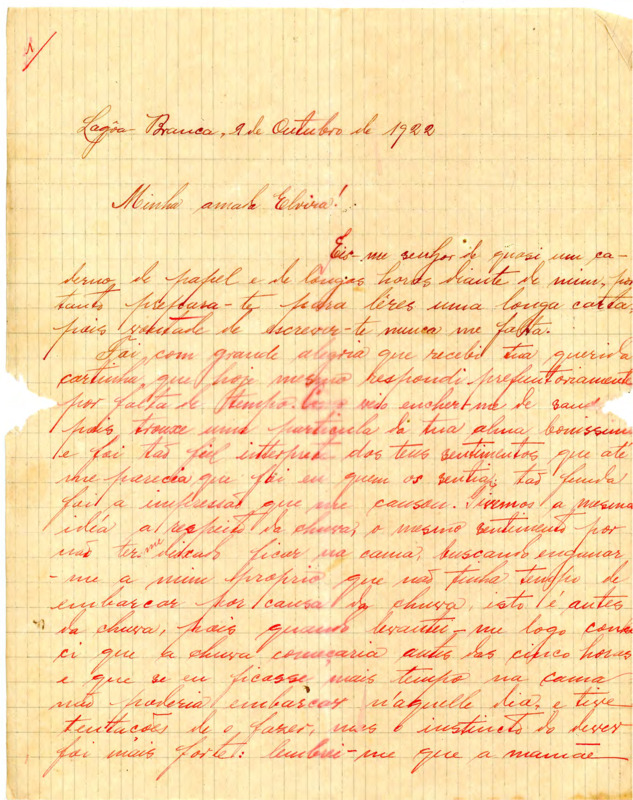 1
Lagôa Branca, 2 de Outubro de 1922
Minha amada Elvira!
Eis-me senhor de quasi um ca-
derno de papel e de longas horas diante de mim, por
tanto prepara-te para lêres uma longa carta,
pois vontade de escrever-te nunca me falta.
Foi com grande alegria que recebi tua querida
cartinha, que hoje mesmo respondi prefuntoriamente
por falta de tempo. veio encher-me de sau
pois trouxe uma particula da tua alma bonissima
e foi tão fiel interprete dos teus sentimentos que até
me parecia que foi eu quem os sentia, tão funda
foi a impressão que me causou. Tivemos a mesma
idéa a respeito da chuva, o mesmo sentimento por
não ter-me deixado ficar na cama, buscando enganar
-me a mim proprio que não tinha tempo de
embarcar por causa da chuva, isto é antes
da chuva, pois quando levantei-me logo conhe
ci que a chuva começaria antes das cinco horas
e que se eu ficasse mais tempo na cama
não poderia embarcar n'aquelle dia, e tive
tentações de o fazer, mas o instincto do dever
foi mais forte: lembrei-me que a mamãe